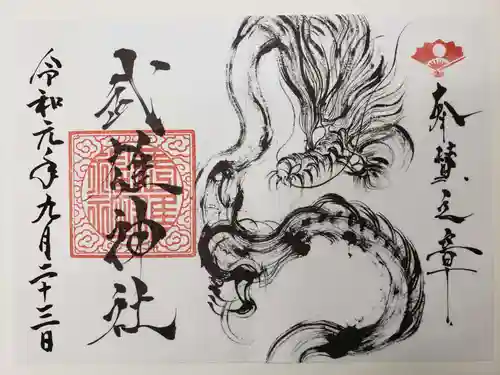 奉賛之章
武 神社
令和元年九月二十三日